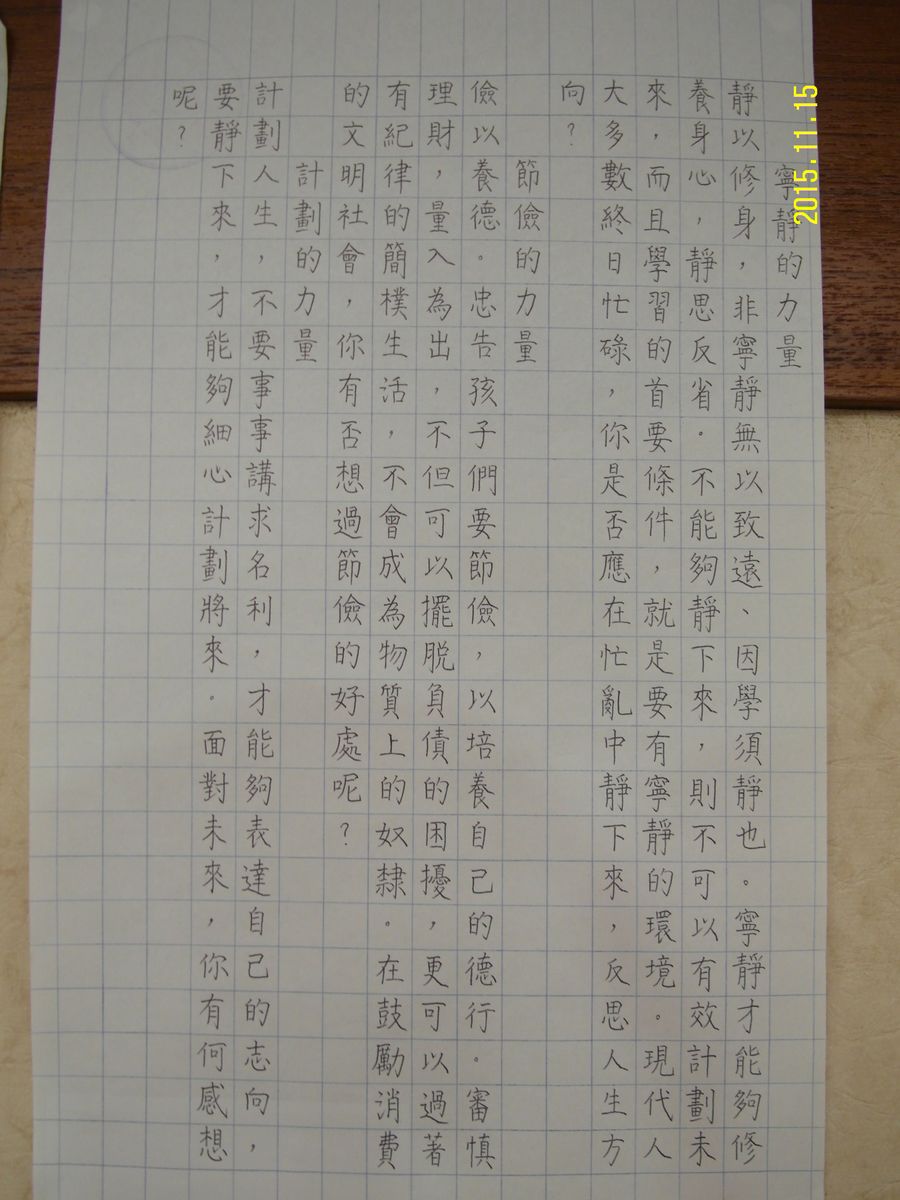 寧靜的力量
靜以修身，非寧靜無以致遠、因學須靜也。寧靜才能夠修
養身心，靜思反省。不能夠靜下來，則不可以有效計劃未
來，而且學習的首要條件，就是要有寧靜的環境。現代人
大多數終日忙碌，你是否應在忙亂中靜下來，反思人生方
向？
節儉的力量
儉以養德。忠告孩子們要節儉，以培養自己的德行。審慎
理財，量入為出，不但可以擺脫負債的困擾，更可以過著
有紀律的簡樸生活，不會成為物質上的奴隸。在鼓勵消費
的文明社會，你有否想過節儉的好處呢？
計劃的力量
計劃人生，不要事事講求名利，才能夠表達自己的志向，
要靜下來，才能夠細心計劃將來。面對未來，你有何感想
呢？
2015.11.15